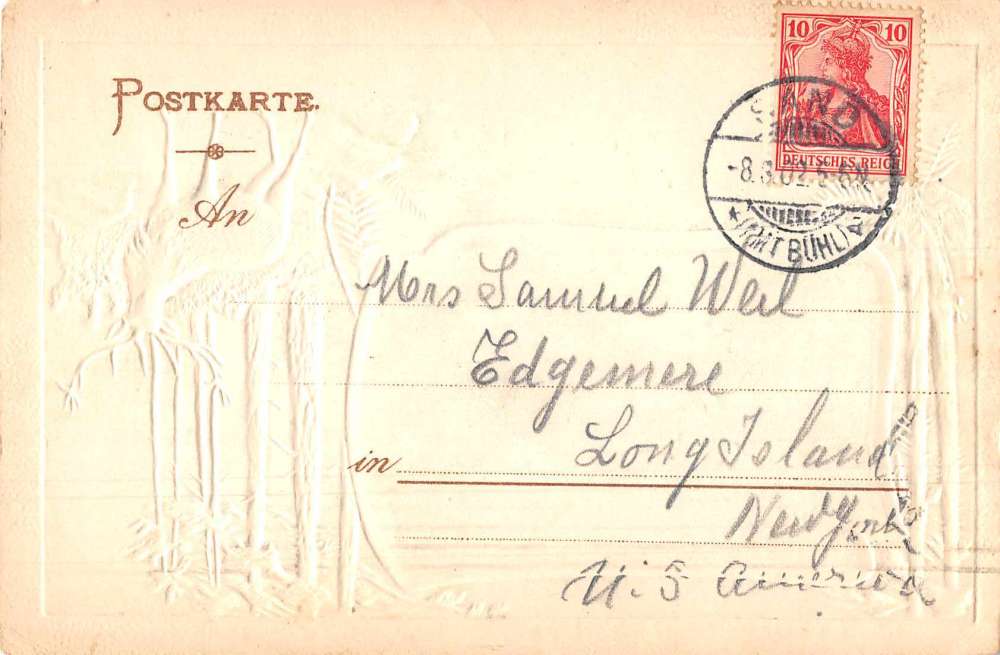 POSTKARTE.
10 10
DEUTSCHES REICH
SAND
-8.8.02.5-6N.
BÜHL)
An
Mrs Samuel Weil
Edgemere
in Long Island
New York
U.S America